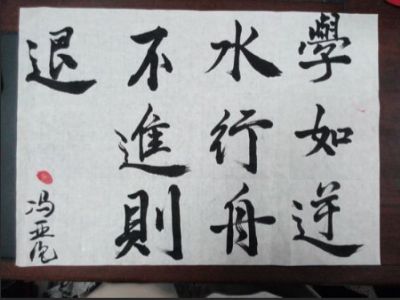 學如逆
水行舟
不進則
退
冯亚